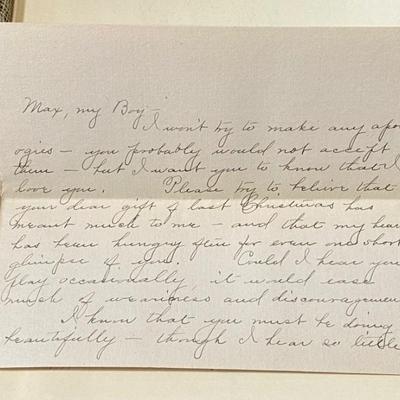 Max, my Boy —
I won't try to make any apol
ogies — you probably would not accept
them — but I want you to know that I
love you. Please try to believe that
your dear gift of last Christmas has
meant much to me — and that my hear
has been hungry for even one short
glimpse of you. Could I hear you
play occasionally, it would ease
much of weariness and discouragemen
I know that you must be doing
beautifully — though I hear so little